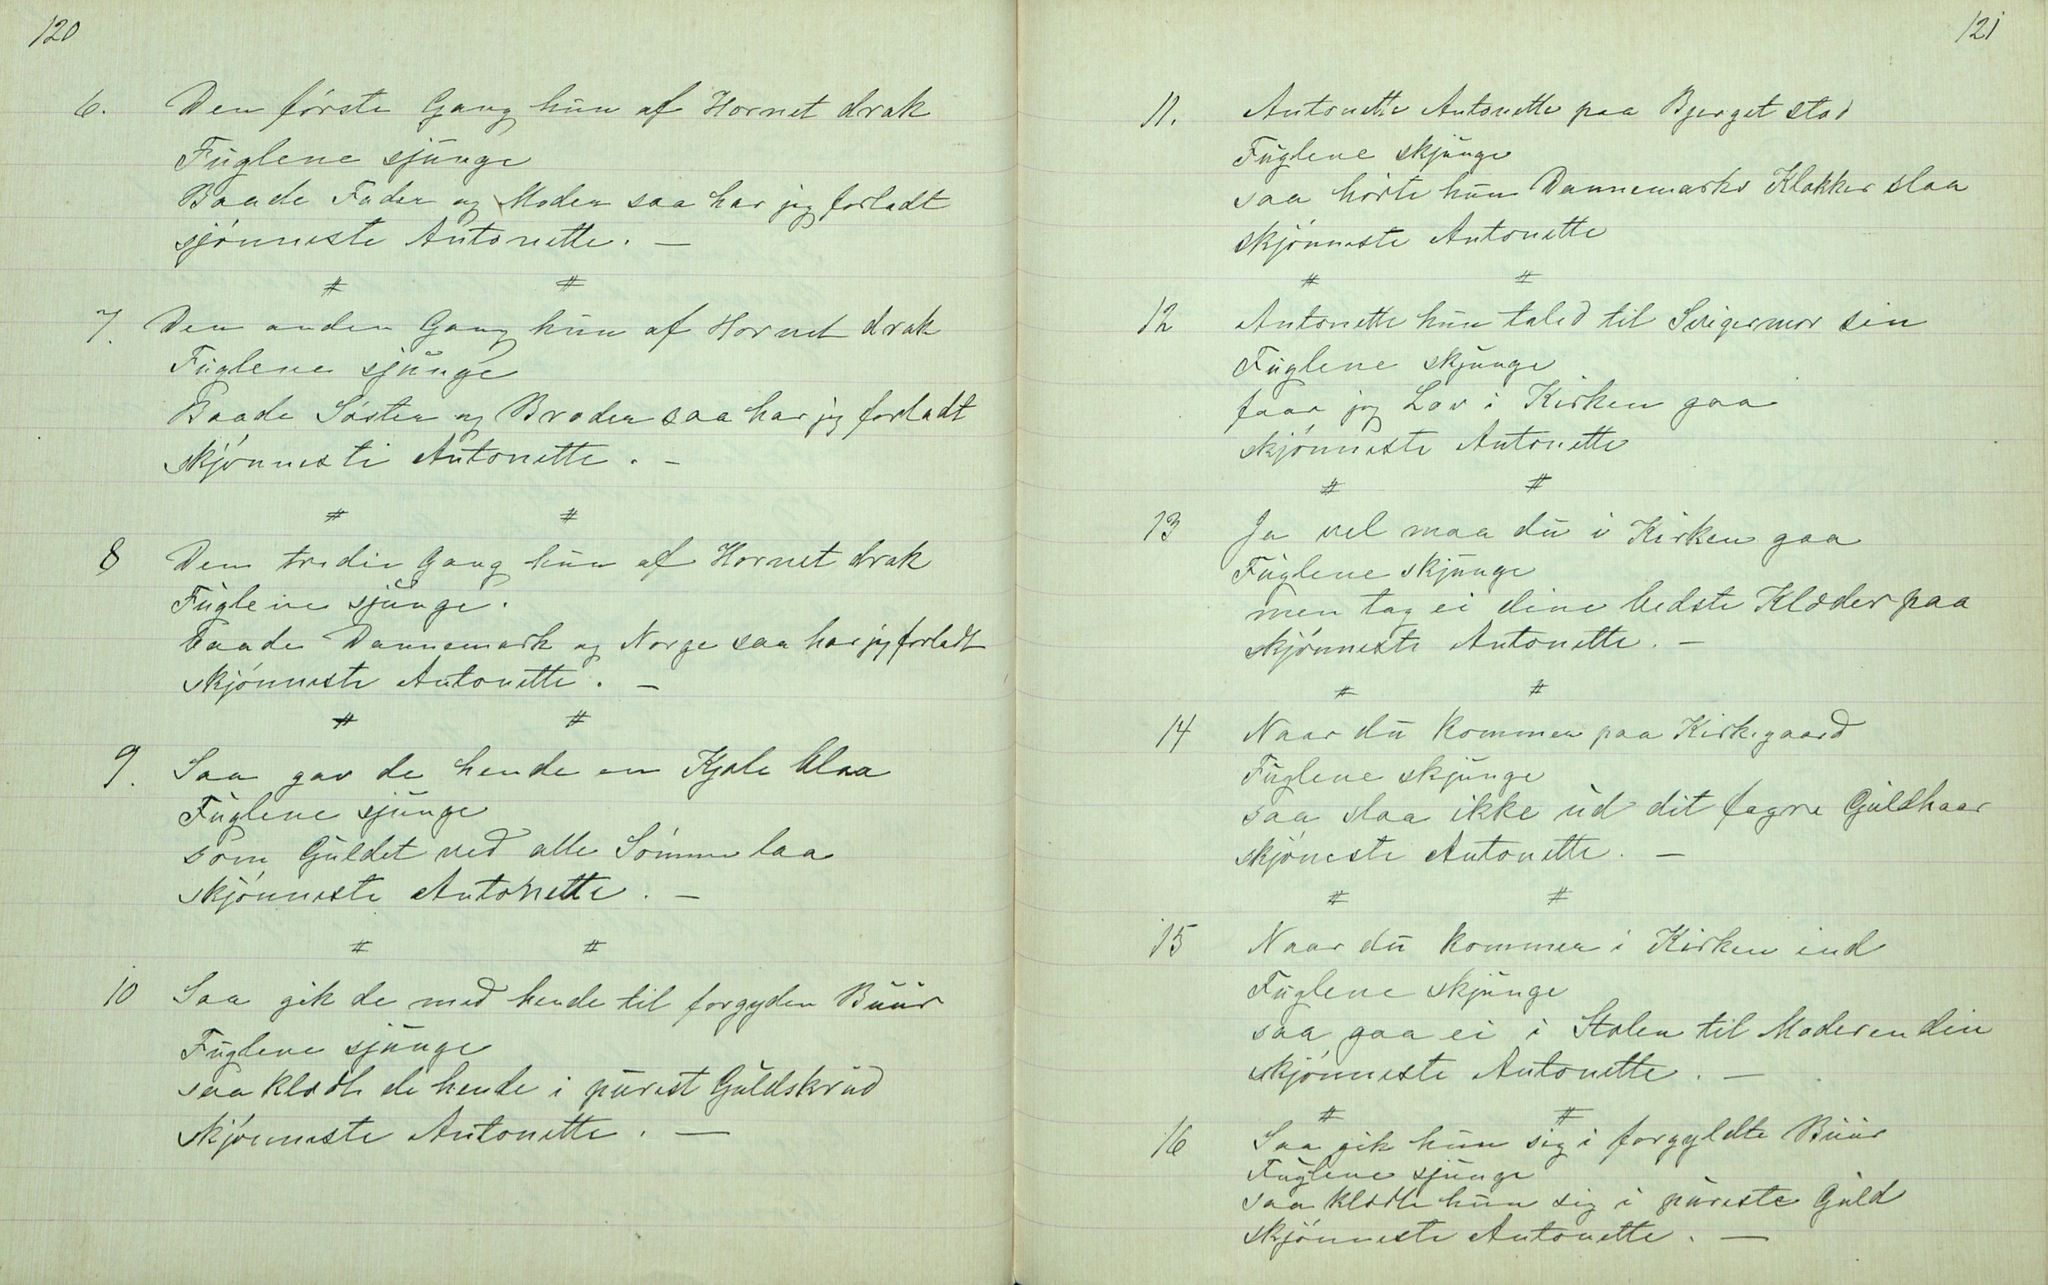 120
6. Den første Gang hun af Hornet drak
Fuglene sjunge
Baade Fader og Moder saa har jeg forladt
sjønneste Antonette. —
# #
7. Den anden Gang hun af Hornet drak
Fuglene sjunge
Baade Søster og Broder saa har jeg forladt
skjønneste Antonette. —
# #
8 Den tredie Gang hun af Hornet drak
Fuglene sjunge.
baade Dannemark og Norge saa har jeg forladt
skjønneste Antonette. —
# #
9. Saa gav de hende en Kjole blaa
Fuglene sjunge
som Guldet ved alle Sømme laa
skjønneste Antonette. —
# #
10 Saa gik de med hende til forgyden Buur
Fuglene sjunge
saa klædte de hende i purest Guldskrud
skjønneste Antonette. —
121
11. Antonette Antonette paa Bjerget stod
Fuglene skjunge
saa hørte hun Dannemarks Klokker slaa
skjønneste Antonette
# #
12 Antonette hun taled til Svigermor sin
Fuglene skjunge
faar jeg Lov i Kirken gaa
skjønneste Antonette
# #
13 Ja vel maa du i Kirken gaa
Fuglene skjunge
men tag ei dine bedste Klæder paa
skjønneste Antonette. —
# #
14 Naar du kommer paa Kirkegaard
Fuglene skjunge
saa slaa ikke ud dit fagre Guldhaar
skjøneste Antonette. —
# #
15 Naar du kommer i Kirken ind
Fuglene skjunge
saa gaa ei i Stolen til Moderen din
skjønneste Antonette. —
# #
16 Saa gik hun sig i forgyldte Buur
Fuglene sjunge
saa klædte hun sig i pureste Guld
skjønneste Antonette. —